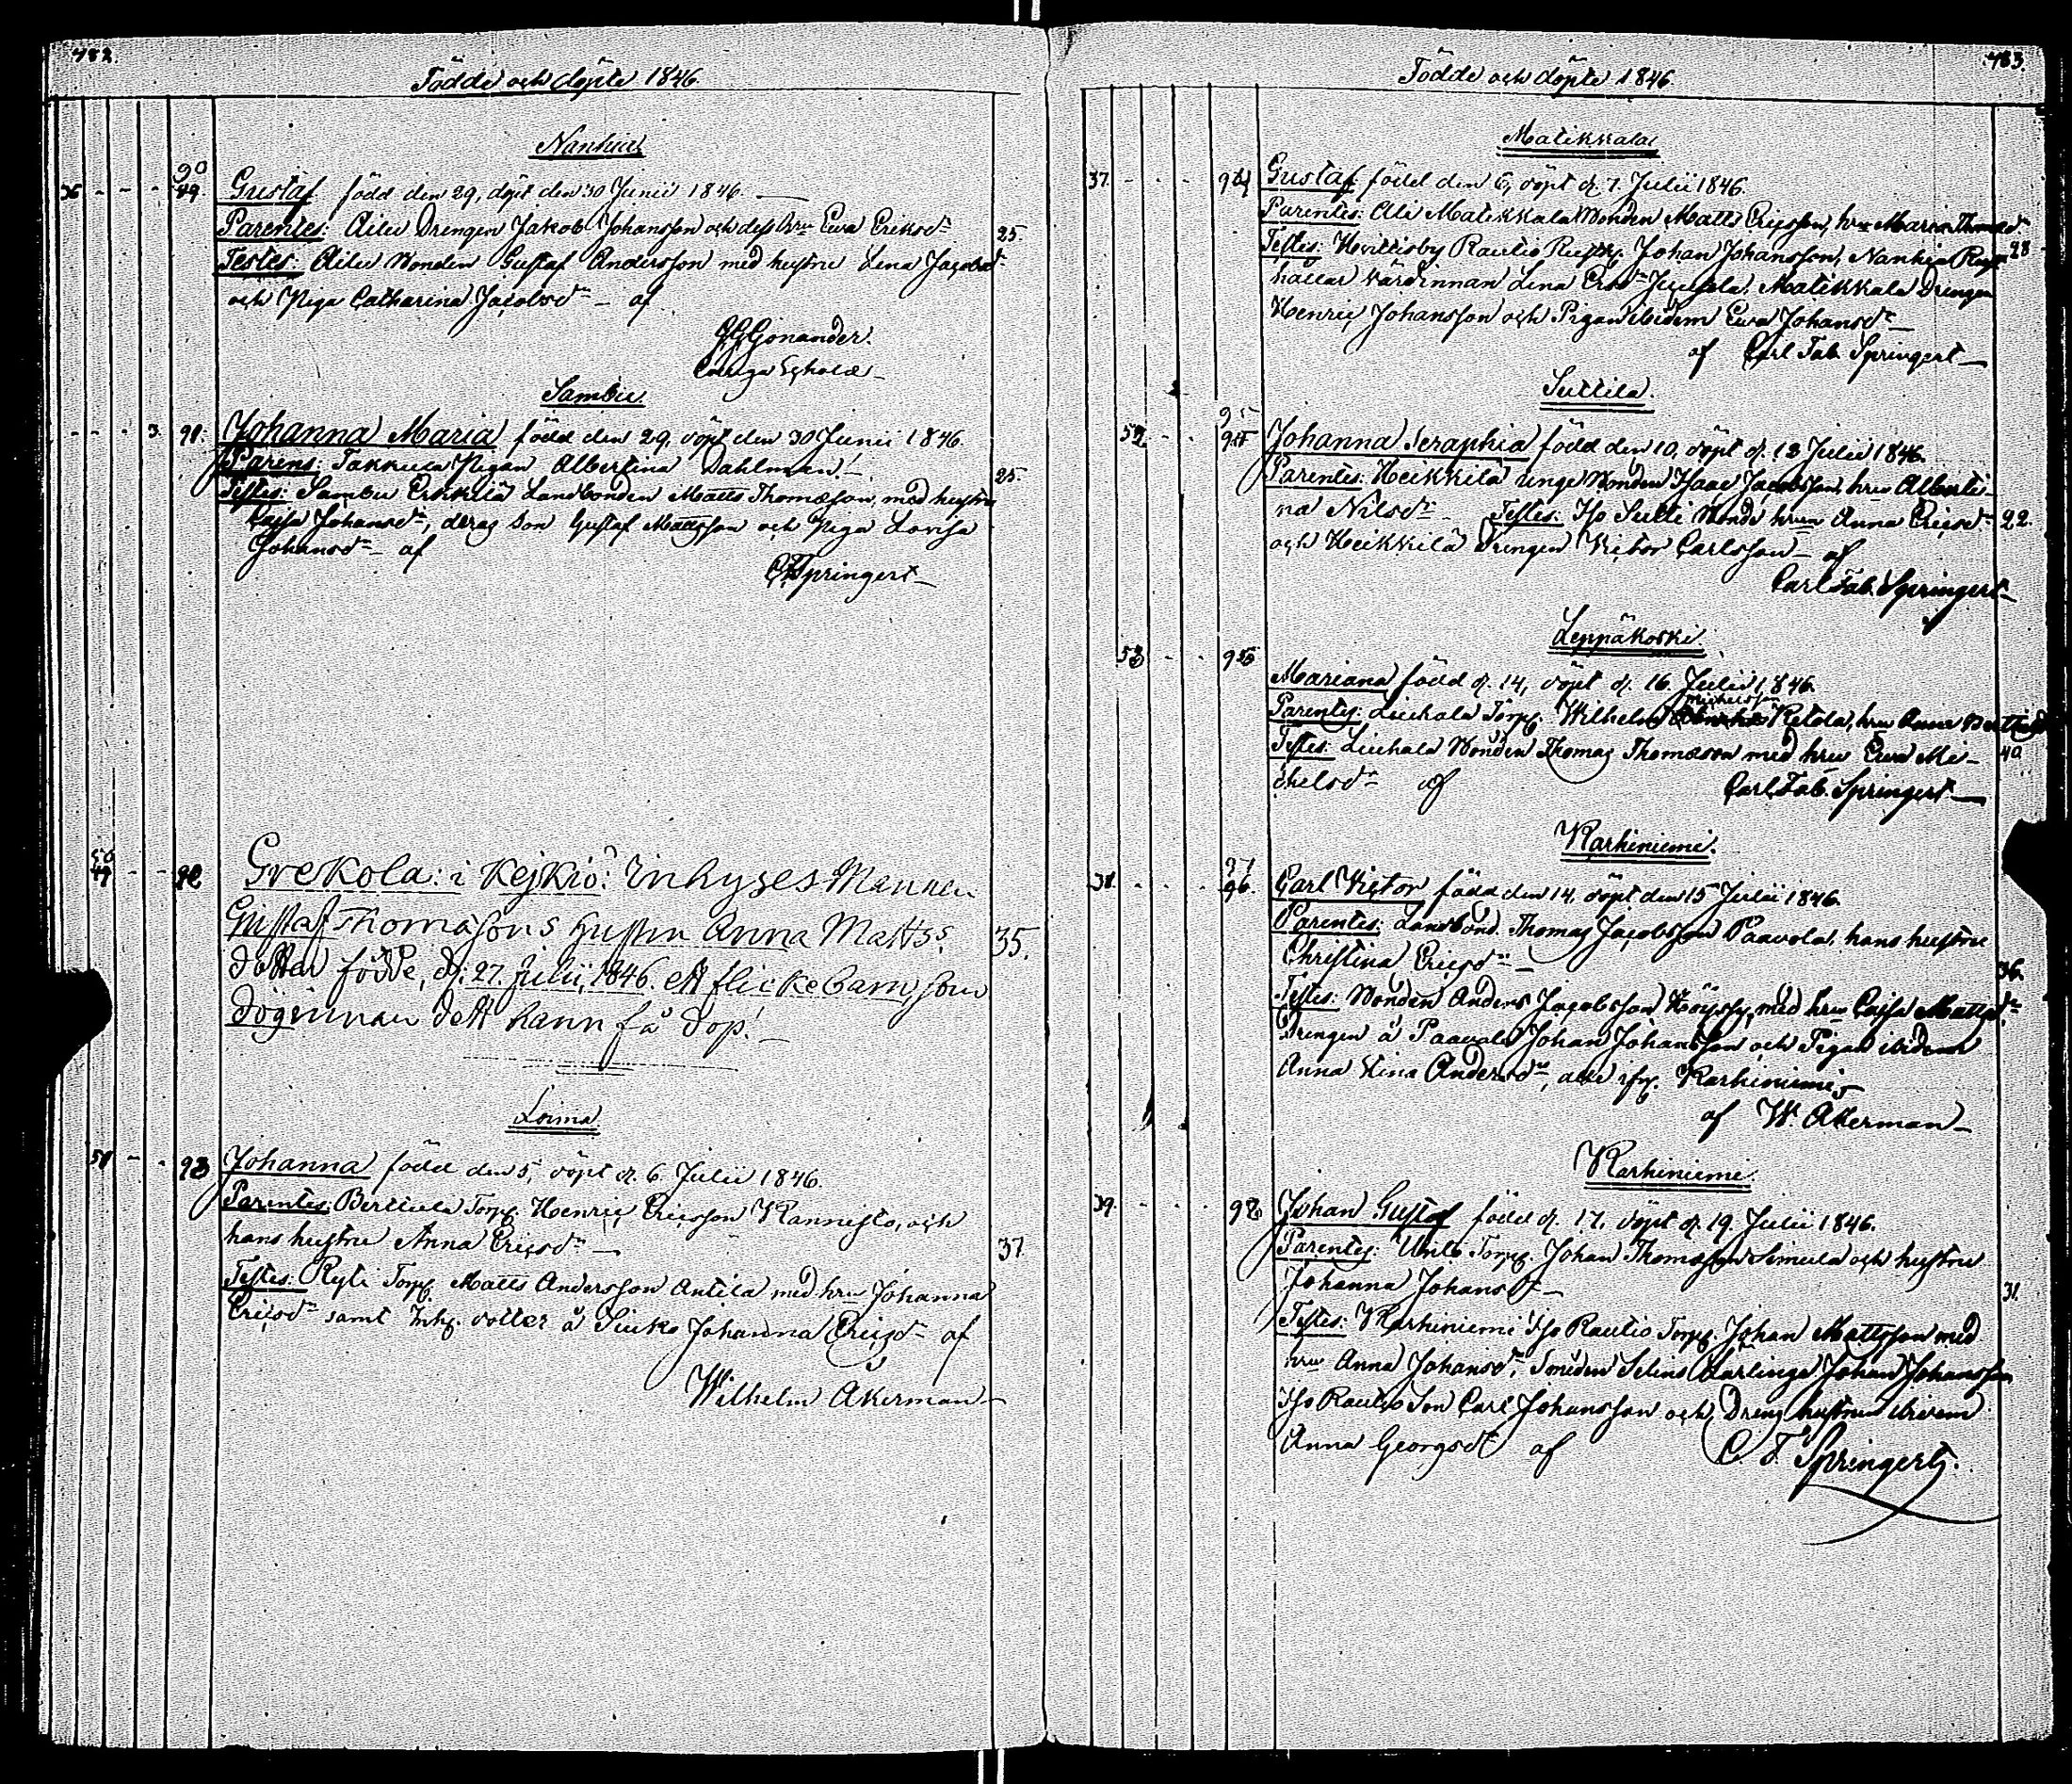 482.
Födde och döpte 1846.
Nanhia
90
36 - - - 89. Gustaf född den 29, döpt den 30 Junii 1846.
Parentes: Drengen Jakob Johansson och dess hru Ewa Eriksdr 25.
Testes: Bonden Gustaf Andersson med hustru Lena Jacobsdr
och Piga Catharina Jacobsdr - af
Gonander.
Sambu
- - - 3. 91. Johanna Maria född den 29, döpt den 30 Junii 1846.
Parens: Takkula Pigan Albertina Dahlman! 25.
Testes: Sambu Erkkilä Landbonden Matts Thomasson, med hustru
Cajsa Johansdr, deras Son Gustaf Mattsson och Piga Lovisa
Johansdr - af
Springert
50
49 - - 92 Grekola: i Kejkiö: Inhyses Mannen
Gustaf Thomasons Hustru Anna Matts 35.
dotter födde, d: 27. Julii, 1846. ett flickebarn, som
dog innan dett hann få dop!
Loima
51 - - 93 Johanna född den 5, döpt d. 6 Julii 1846.
Parentes: Berttula Torp. Henric Ericsson Kannisto, och
hans hustru Anna Ericsdr 37.
Testes: Kyti Torp. Matts Andersson Antila med hru Johanna
Ericsdr samt Inh. dotter å Johanna Ericsdr af
Wilhelm Åkerman
483.
Födde och döpte 1846
Matikkala
37. - - - 94 Gustaf född den 6, döpt d. 7. Julii 1846.
Parentes: Ali Matikkala Bonden Matts Ericsson, hru Maria Thomasdr
Testes: Hvittisby Rautio Johan Johansson, Nanhia 28
hållar värdinnan Lena Matikkala Drengen
Henric Johansson och Pigan ibidem Ewa Johansdr
af Carl Fab. Springert
Suttila.
52 - - 95 Johanna Seraphia född den 10, döpt d. 12 Julii 1846.
Parentes: Heikkilä unge Bonden Isaac Jacobsson, hru Alberti-
na Nilsdr Testes: Iso Sutti Bonde hrun Anna Ericsdr 22.
och Heikkilä Drengen Victor Carlsson - af
Carl Fab. Springert
Leppäkoski
53 - - 96 Mariana född d. 14, döpt d. 16 Julii 1846.
Michelsson
Parentes: Liukala Torp. Wilhelm Ketola, hru Anna
Testes: Liukala Bonden Thomas Thomasson med hru Ewa Mi- 40.
chelsdr af Carl Fab. Springert
Karhiniemi.
97
38. - - - 96. Carl Victor född den 14, döpt den 15 Julii 1846.
Parentes: Landbond. Thomas Jacobsson Paavola, hans hustru
Christina Ericsdr 36.
Testes: Bonden Anders Jacobsson Höyssy, med hru Cajsa Mattsdr
Drengen å Paavola Johan Johansson och Pigan ibidem
Anna Lina Andersdr, alla ifr. Karhiniemi,
af W. Åkerman
Karhiniemi.
39. - - - 98 Johan Gustaf född d. 17, döpt d. 19 Julii 1846.
Parentes: Torp. Johan Thomasson Simula och hustru
Johanna Johansdr 31.
Testes: Karhiniemi Iso Rautio Torp. Johan Mattsson med
hru Anna Johansdr, Smeden Selins Lärlinge Johan Johansson
Iso Rautio Son Carl Johansson och Dreng hustrun ibidem
Anna Georgsdr af C F Springert.